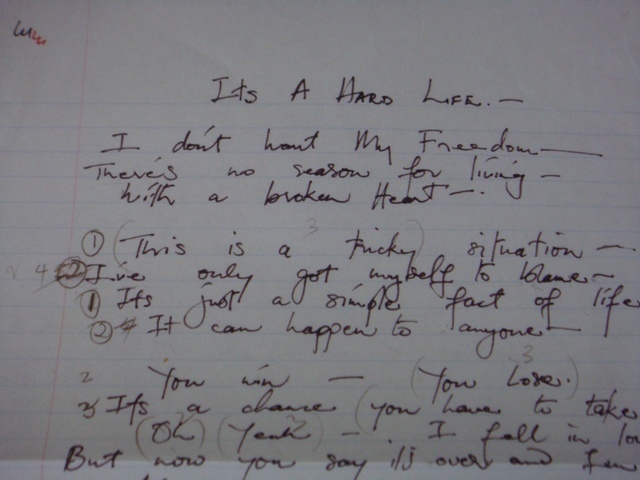 Its A HARD LIFE. —
I don't want My Freedom —
There's no season for living —
With a broken Heart —.
3
① (This is a tricky) situation —.
4 ② I've only got myself to blame —
① Its just a simple fact of life
② It can happen to anyone —
3
2 You win — (You Lose.)
3 It's a chance (you have to take
(Oh) (Yeah) —. I fall in lo
But now you say it's over and I'm